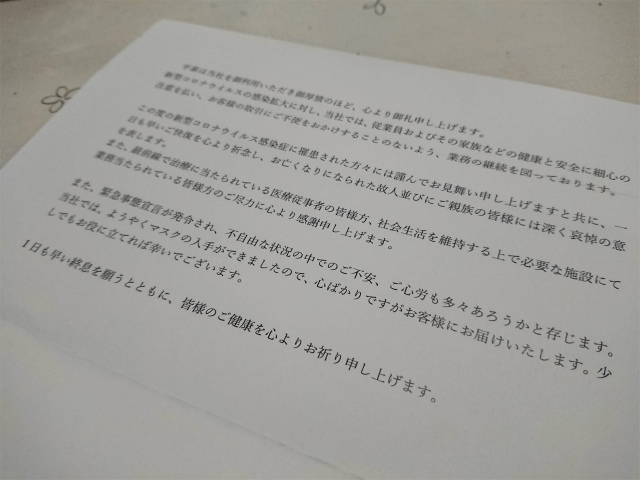 平素は当社を御利用いただき御厚情のほど、心より御礼申し上げます。
新型コロナウイルスの感染拡大に対し、当社では、従業員およびその家族などの健康と安全に細心の
注意を払い、お客様の取引にご不便をおかけすることのないよう、業務の継続を図っております。
この度の新型コロナウイルス感染症に罹患された方々には謹んでお見舞い申し上げますと共に、一
日も早いご快復を心より祈念し、お亡くなりになられた故人並びにご親族の皆様には深く哀悼の意
を表します。
また、最前線で治療に当たられている医療従事者の皆様方、社会生活を維持する上で必要な施設にて
業務当たられている皆様方のご尽力に心より感謝申し上げます。
また、緊急事態宣言が発令され、不自由な状況の中でのご不安、ご心労も多々あろうかと存じます。
当社では、ようやくマスクの入手ができましたので、心ばかりですがお客様にお届けいたします。少
しでもお役に立てれば幸いでございます。
1日も早い終息を願うとともに、皆様のご健康を心よりお祈り申し上げます。